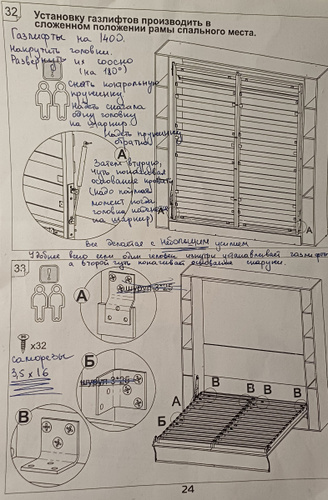 32
Установку газлифтов производить в
сложенном положении рамы спального места.
Газлифты на 1400.
Накрутить головки.
Развернуть их соосно
(на 180°)
Снять контрольную
пружинку
Надеть сначала
одну головку
на шарнир
Надеть пружинку
обратно
А
Затем вторую,
чуть покачивая
основание кровати
(надо поймать
момент когда
головка
на шарнир)
А
Все делается с небольшим усилием
33
Удобнее всего если один человек изнутри устанавливает газлифты
а второй чуть покачивает основание снаружи.
А
шуруп 3*15
x32
саморезы
3,5 x 16
Б
шуруп 3*26
В
В В В В
А
Б
24